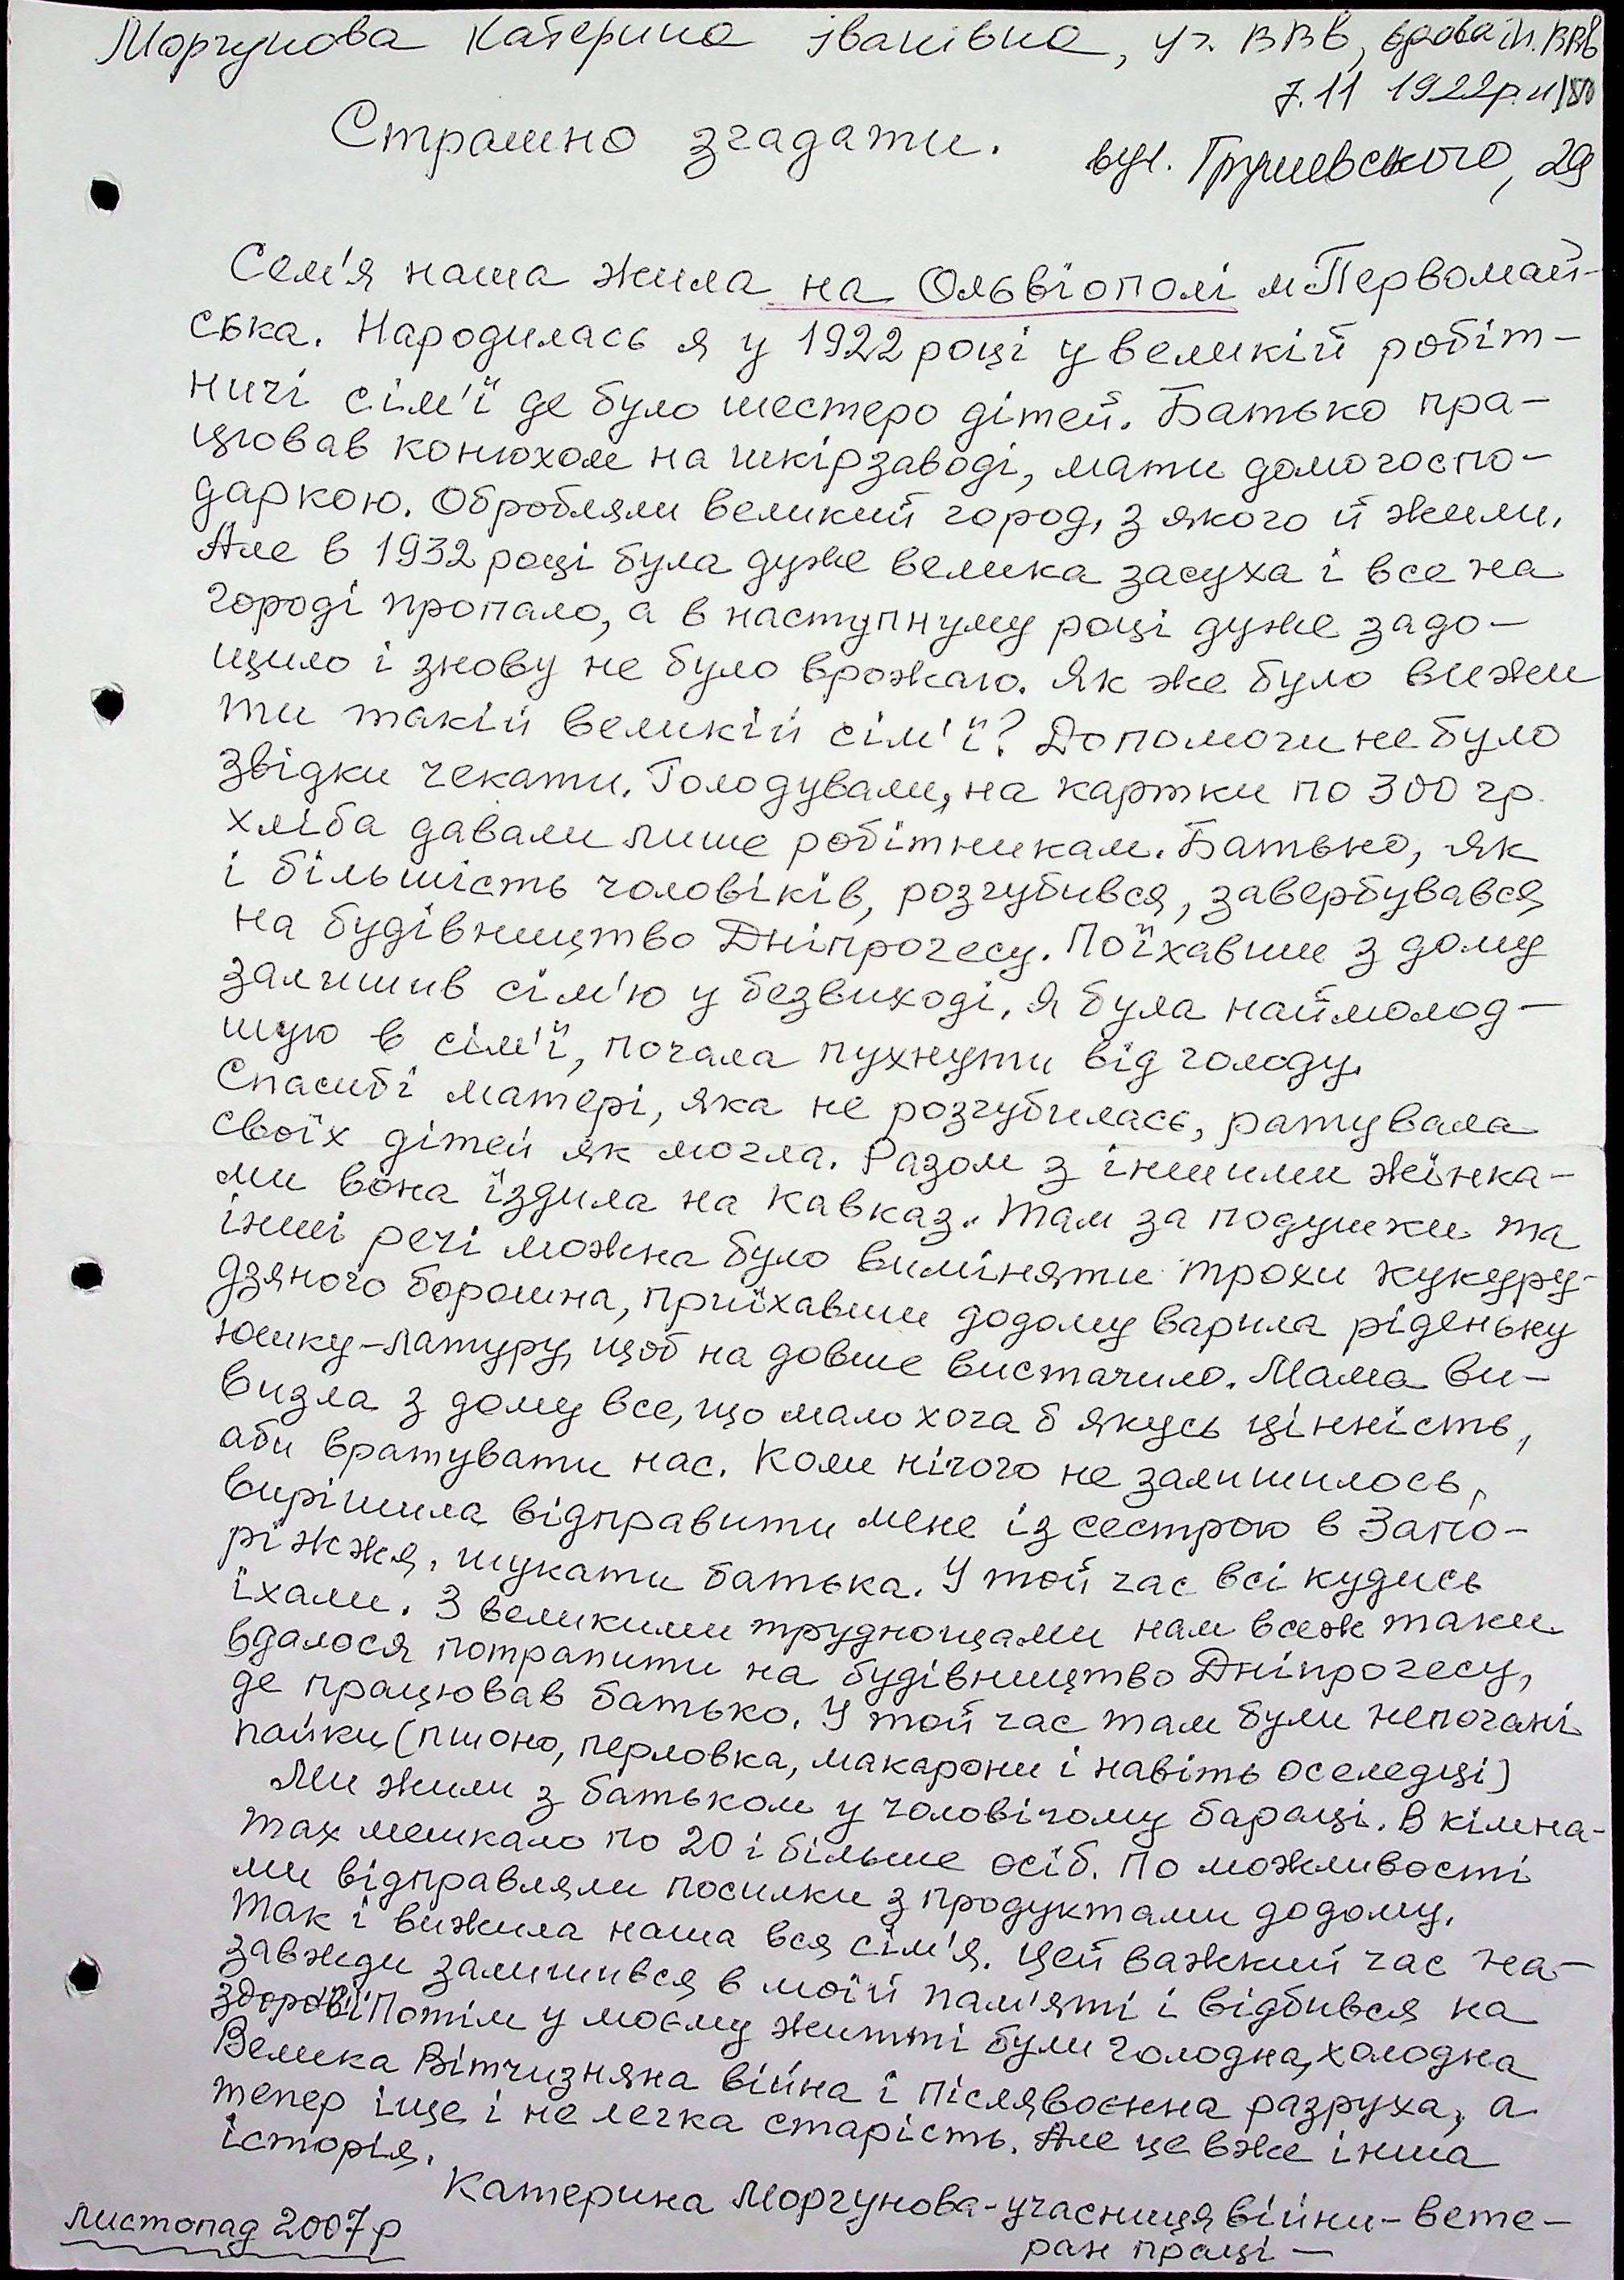 Моргунова Катерина Іванівна, уч. ВВВ, вдова ін. ВВВ
7.11 1922р.н
Страшно згадати.
вул. Грушевського, 29
Сем'я наша жила на Ольвіополі м Первомай-
ська. Народилась я у 1922 році у великій робіт-
ничі сім'ї де було шестеро дітей. Батько пра-
цював конюхом на шкірзаводі, мати домогоспо-
даркою. Обробляли великий город, з якого й жили.
Але в 1932 році була дуже велика засуха і все на
городі пропало, а в наступнуму році дуже задо-
щило і знову не було врожаю. Як же було вижи
ти такій великій сім'ї? Допомоги не було
звідки чекати. Голодували, на картки по 300 гр.
хліба давали лише робітникам. Батько, як
і більшість чоловіків, розгубився, завербувався
на будівництво Дніпрогесу. Поїхавши з дому
залишив сім'ю у безвиході, я була наймолод-
шую в сім'ї, почала пухнути від голоду.
Спасибі матері, яка не розгубилась, ратувала
своїх дітей як могла. Разом з іншими жінка-
ми вона їздила на Кавказ. Там за подушки та
інші речі можна було виміняти трохи кукуру-
дзяного борошна, приїхавши додому варила ріденьку
юшку-латуру, щоб на довше вистачило. Мама ви-
визла з дому все, що мало хоча б якусь цінність,
аби вратувати нас. Коли нічого не залишилось,
вирішила відправити мене із сестрою в Запо-
ріжжя, шукати батька. У той час всі кудись
їхали. З великими труднощами нам всеж таки
вдалося потрапити на будівництво Дніпрогесу,
де працював батько. У той час там були непогані
пайки (пшоно, перловка, макарони і навіть оселедці)
Ми жили з батьком у чоловічому бараці. В кімна-
тах мешкало по 20 і більше осіб. По можливості
ми відправляли посилки з продуктами додому.
Так і вижила наша вся сім'я. Цей важкий час на-
завжди залишився в моїй пам'яті і відбився на
здоров'ї Потім у моєму житті були голодна, холодна
Велика Вітчизняна війна і післявоєнна разруха, а
тепер іще і не легка старість. Але це вже інша
історія.
Катерина Моргунова-учасниця війни-вете-
ран праці –
листопад 2007 р